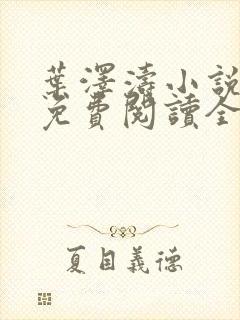 葉澤濤小說
免費閱讀全
夏目義德